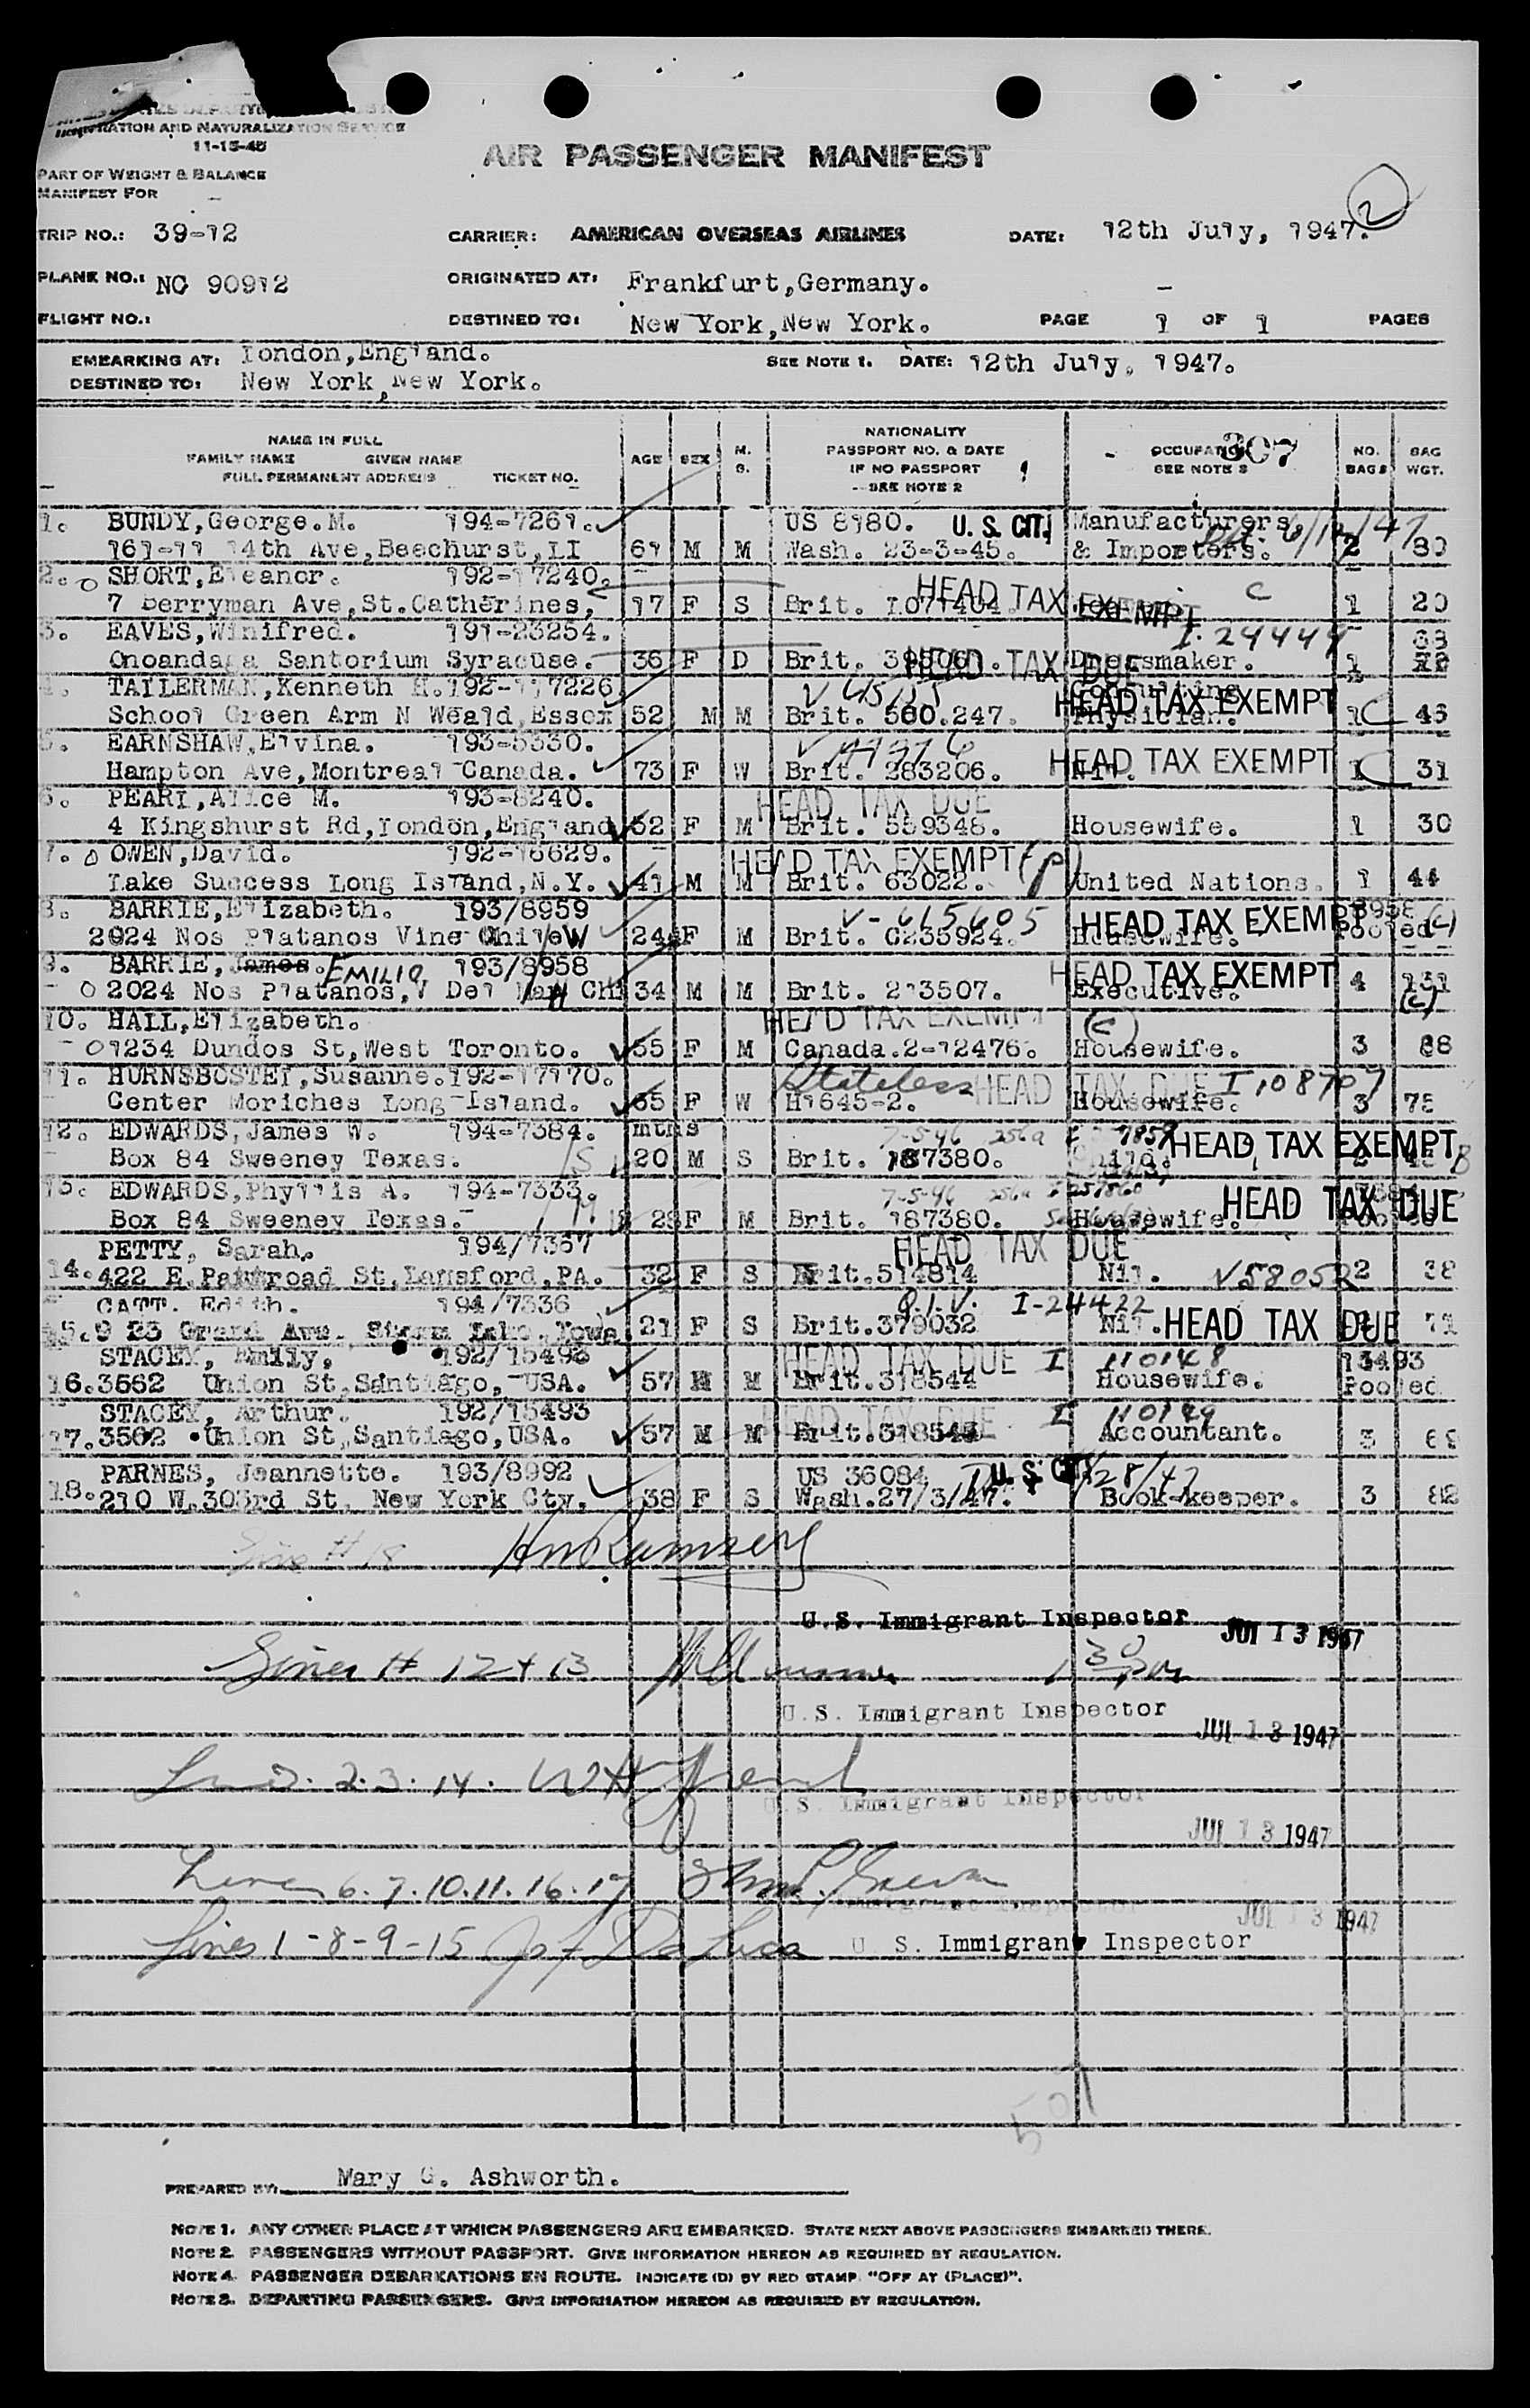 IMMIGRATION AND NATURALIZATION SERVICE
11-15-45
AIR PASSENGER MANIFEST
PART OF WEIGHT & BALANCE
MANIFEST FOR
2
TRIP NO.: 39-12 CARRIER: AMERICAN OVERSEAS AIRLINES DATE: 12th July, 1947.
PLANE NO.: NC 90912 ORIGINATED AT: Frankfurt,Germany.
FLIGHT NO.: DESTINED TO: New York,New York. PAGE 1 OF 1 PAGES
EMBARKING AT: London,England. SEE NOTE 1. DATE: 12th July, 1947.
DESTINED TO: New York,New York.
NAME IN FULL
FAMILY NAME GIVEN NAME
FULL PERMANENT ADDRESS TICKET NO.
AGE SEX M. S.
NATIONALITY
PASSPORT NO. & DATE
IF NO PASSPORT
SEE NOTE 2
OCCUPATION 307
SEE NOTE 3
NO. BAGS BAG WGT.
1. BUNDY,George.M. 194-7261. US 8180. U. S. CIT. Manufacturers
161-11 14th Ave,Beechurst,LI 61 M M Wash. 23-3-45. & Importers. 2 80
2. SHORT,Eleanor. 192-17240. HEAD TAX EXEMPT C
7 Berryman Ave,St.Catherines, 17 F S Brit. 1 20
3. EAVES,Winifred. 191-23254. I-24444 38
Onoandaga Santorium Syracuse. 36 F D Brit. HEAD TAX DUE Dressmaker. 1
4. TAILERMAN,Kenneth H.192-117226 HEAD TAX EXEMPT
School Green Arm N Weald,Essex 52 M M Brit. 560.247. Physician. 1 C 46
5. EARNSHAW,Elvina. 193-8330. HEAD TAX EXEMPT
Hampton Ave,Montreal Canada. 73 F W Brit. 283206. Nil. 1 C 31
6. PEARL,Alice M. 193-8240. HEAD TAX DUE
4 Kingshurst Rd,London,England 52 F M Brit. 559348. Housewife. 1 30
7. OWEN,David. 192-16629. HEAD TAX EXEMPT (P)
Lake Success Long Island,N.Y. 41 M M Brit. 63022. United Nations. 1 44
8. BARRIE,Elizabeth. 193/8959 V-615605 HEAD TAX EXEMPT 8958 (c)
2024 Nos Platanos Vine Chile 24 F M Brit. C235924. Housewife. Pooled
9. BARRIE, James. EMILIO 193/8958 HEAD TAX EXEMPT
2024 Nos Platanos,V Del Mar Chi 34 M M Brit. 213507. Executive. 4 131
(c)
10. HALL,Elizabeth. HEAD TAX EXEMPT (c)
1234 Dundos St,West Toronto. 55 F M Canada.2-12476. Housewife. 3 88
11. HURNSBOSTEL,Susanne.192-17170. Stateless HEAD TAX DUE I,108707
Center Moriches Long Island. 65 F W H1645-2. Housewife. 3 75
12. EDWARDS,James W. 194-7384. mths 7-5-46 HEAD TAX EXEMPT
Box 84 Sweeney Texas. 20 M S Brit. 187380. Child.
13. EDWARDS,Phyllis A. 194-7333. 7-5-46 HEAD TAX DUE
Box 84 Sweeney Texas. 28 F M Brit. 187380. Housewife.
PETTY, Sarah. 194/7367 HEAD TAX DUE
14. 422 E. St,Lansford,PA. 32 F S Brit.514814 Nil. V580522 38
CATT. Edith. 194/7336 Q.I.V. I-24422
15. 9 23 Grand Ave. Storm Lake,Iowa 21 F S Brit.379032 Nil. HEAD TAX DUE 71
STACEY, Emily, 192/15493 HEAD TAX DUE I 110148 13493
16.3562 Union St,Santiago, USA. 57 M Brit.318544 Housewife. Pooled
STACEY, Arthur. 192/15493 HEAD TAX DUE I
17.3562 Union St,Santiago,USA. 57 M M Brit.318543 Accountant. 3 69
PARNES, Jeannette. 193/8992 US 36084 U. S. CIT.
18.210 W.303rd St, New York Cty. 38 F S Wash.27/3/47. Book-keeper. 3 82
U.S. Immigrant Inspector JUL 13 1947
Lines # 12 + 13 1 30 PM
U.S. Immigrant Inspector JUL 13 1947
Lines. 2.3.14.
U.S. Immigrant Inspector
JUL 13 1947
Lines 6.7.10.11.16.17
Immigrant Inspector JUL 13 1947
Lines 1-8-9-15 Jos F De Luca U. S. Immigrant Inspector
501
PREPARED BY: Mary G. Ashworth.
NOTE 1. ANY OTHER PLACE AT WHICH PASSENGERS ARE EMBARKED. STATE NEXT ABOVE PASSENGERS EMBARKED THERE.
NOTE 2. PASSENGERS WITHOUT PASSPORT. GIVE INFORMATION HEREON AS REQUIRED BY REGULATION.
NOTE 4. PASSENGER DEBARKATIONS EN ROUTE. INDICATE (D) BY RED STAMP "OFF AT (PLACE)".
NOTE 3. DEPARTING PASSENGERS. GIVE INFORMATION HEREON AS REQUIRED BY REGULATION.